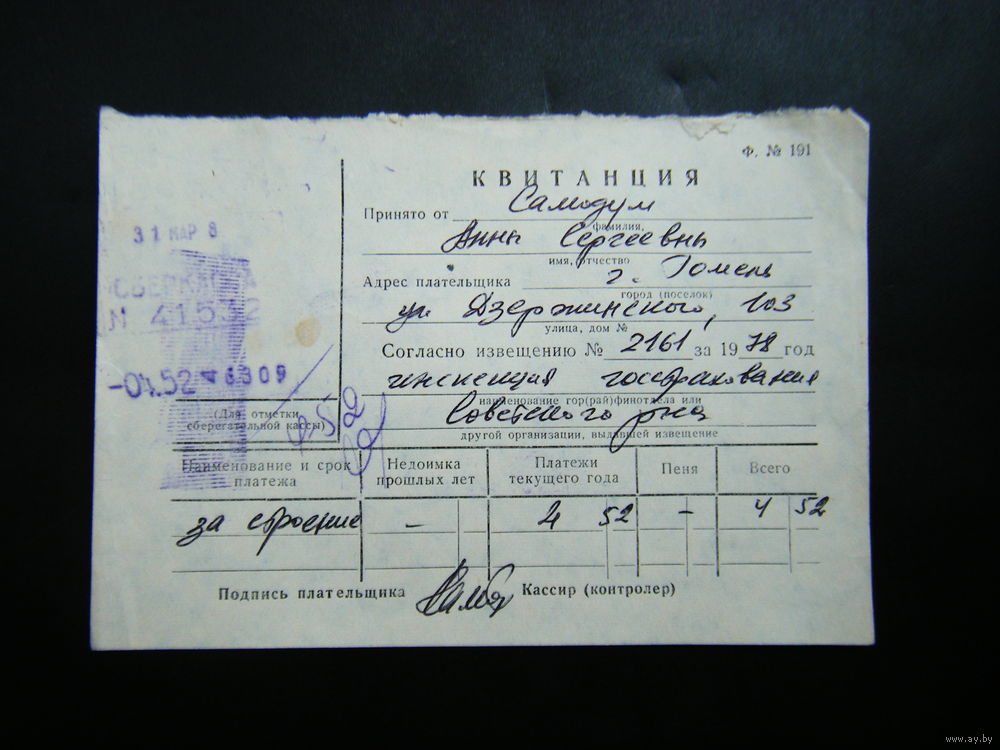 Ф. № 191
КВИТАНЦИЯ
Принято от Самодум
фамилия,
Анны Сергеевны
имя, отчество
Адрес плательщика г. Гомель
город (поселок)
ул Дзержинского, 103
улица, дом №
Согласно извещению № 2161 за 1978 год
инспекция госстрахования
наименование гор(рай)финотдела или
Советского р-на
другой организации, выдавшей извещение
31 МАР 8
СБЕРКАССА
N 41532
-04.52 6309
(Для отметки
сберегательной кассы)
4.52
Наименование и срок платежа
Недоимка прошлых лет
Платежи текущего года
Пеня
Всего
за строение – 4 52 – 4 52
Подпись плательщика Кассир (контролер)
www.ay.by